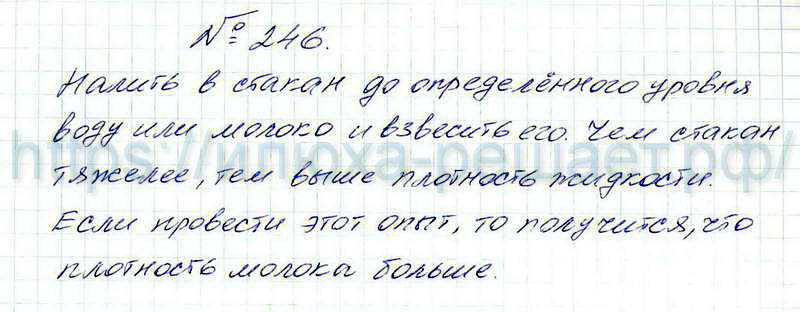 № 246.
Налить в стакан до определённого уровня
воду или молоко и взвесить его. Чем стакан
https://илюха-решает.рф/
тяжелее, тем выше плотность жидкости.
Если провести этот опыт, то получится, что
плотность молока больше.